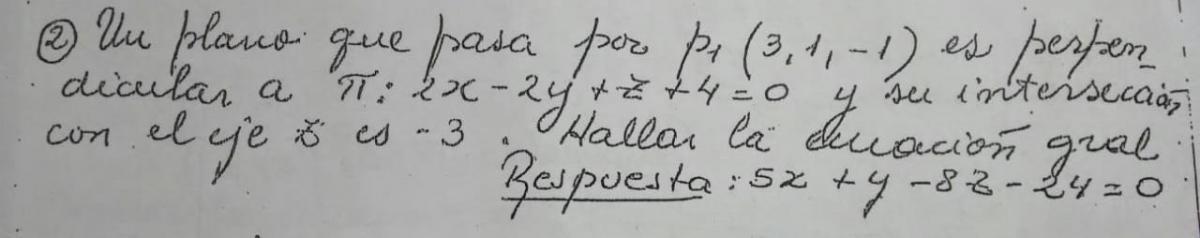 ② Un plano que pasa por p₁ (3, 1, -1) es perpen_
dicular a π: 2x - 2y + z + 4 = 0 y su intersección
con el eje z es -3. Hallar la ecuación gral
Respuesta: 5x + y - 8z - 24 = 0